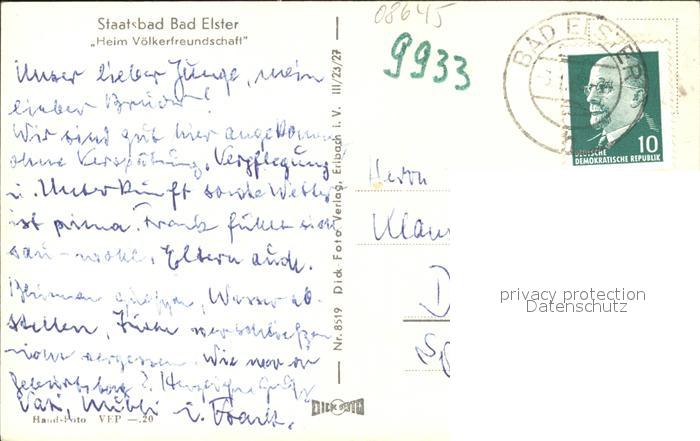 Staatsbad Bad Elster
„Heim Völkerfreundschaft"
Unser lieber Junge, mein
lieber Bruder!
Wir sind gut hier angekommen
ohne Verspätung. Verpflegung
u. Unterkunft sowie Wetter
ist prima. Frank fühlt sich
sau-wohl, Eltern auch.
Blumen gießen, Wasser ab-
stellen, Türen verschließen
nicht vergessen. Wie war der
Geburtstag? Herzliche Grüße
Vati, Mutti u. Frank.
Hand-Foto VEP —.20
Nr. 8519 Dick-Foto Verlag, Erlbach i. V. III/23/27
DICK FOTO
08645
9933
BAD ELSTER
10
DEUTSCHE
DEMOKRATISCHE REPUBLIK
Herrn
Klaus
privacy protection
Datenschutz